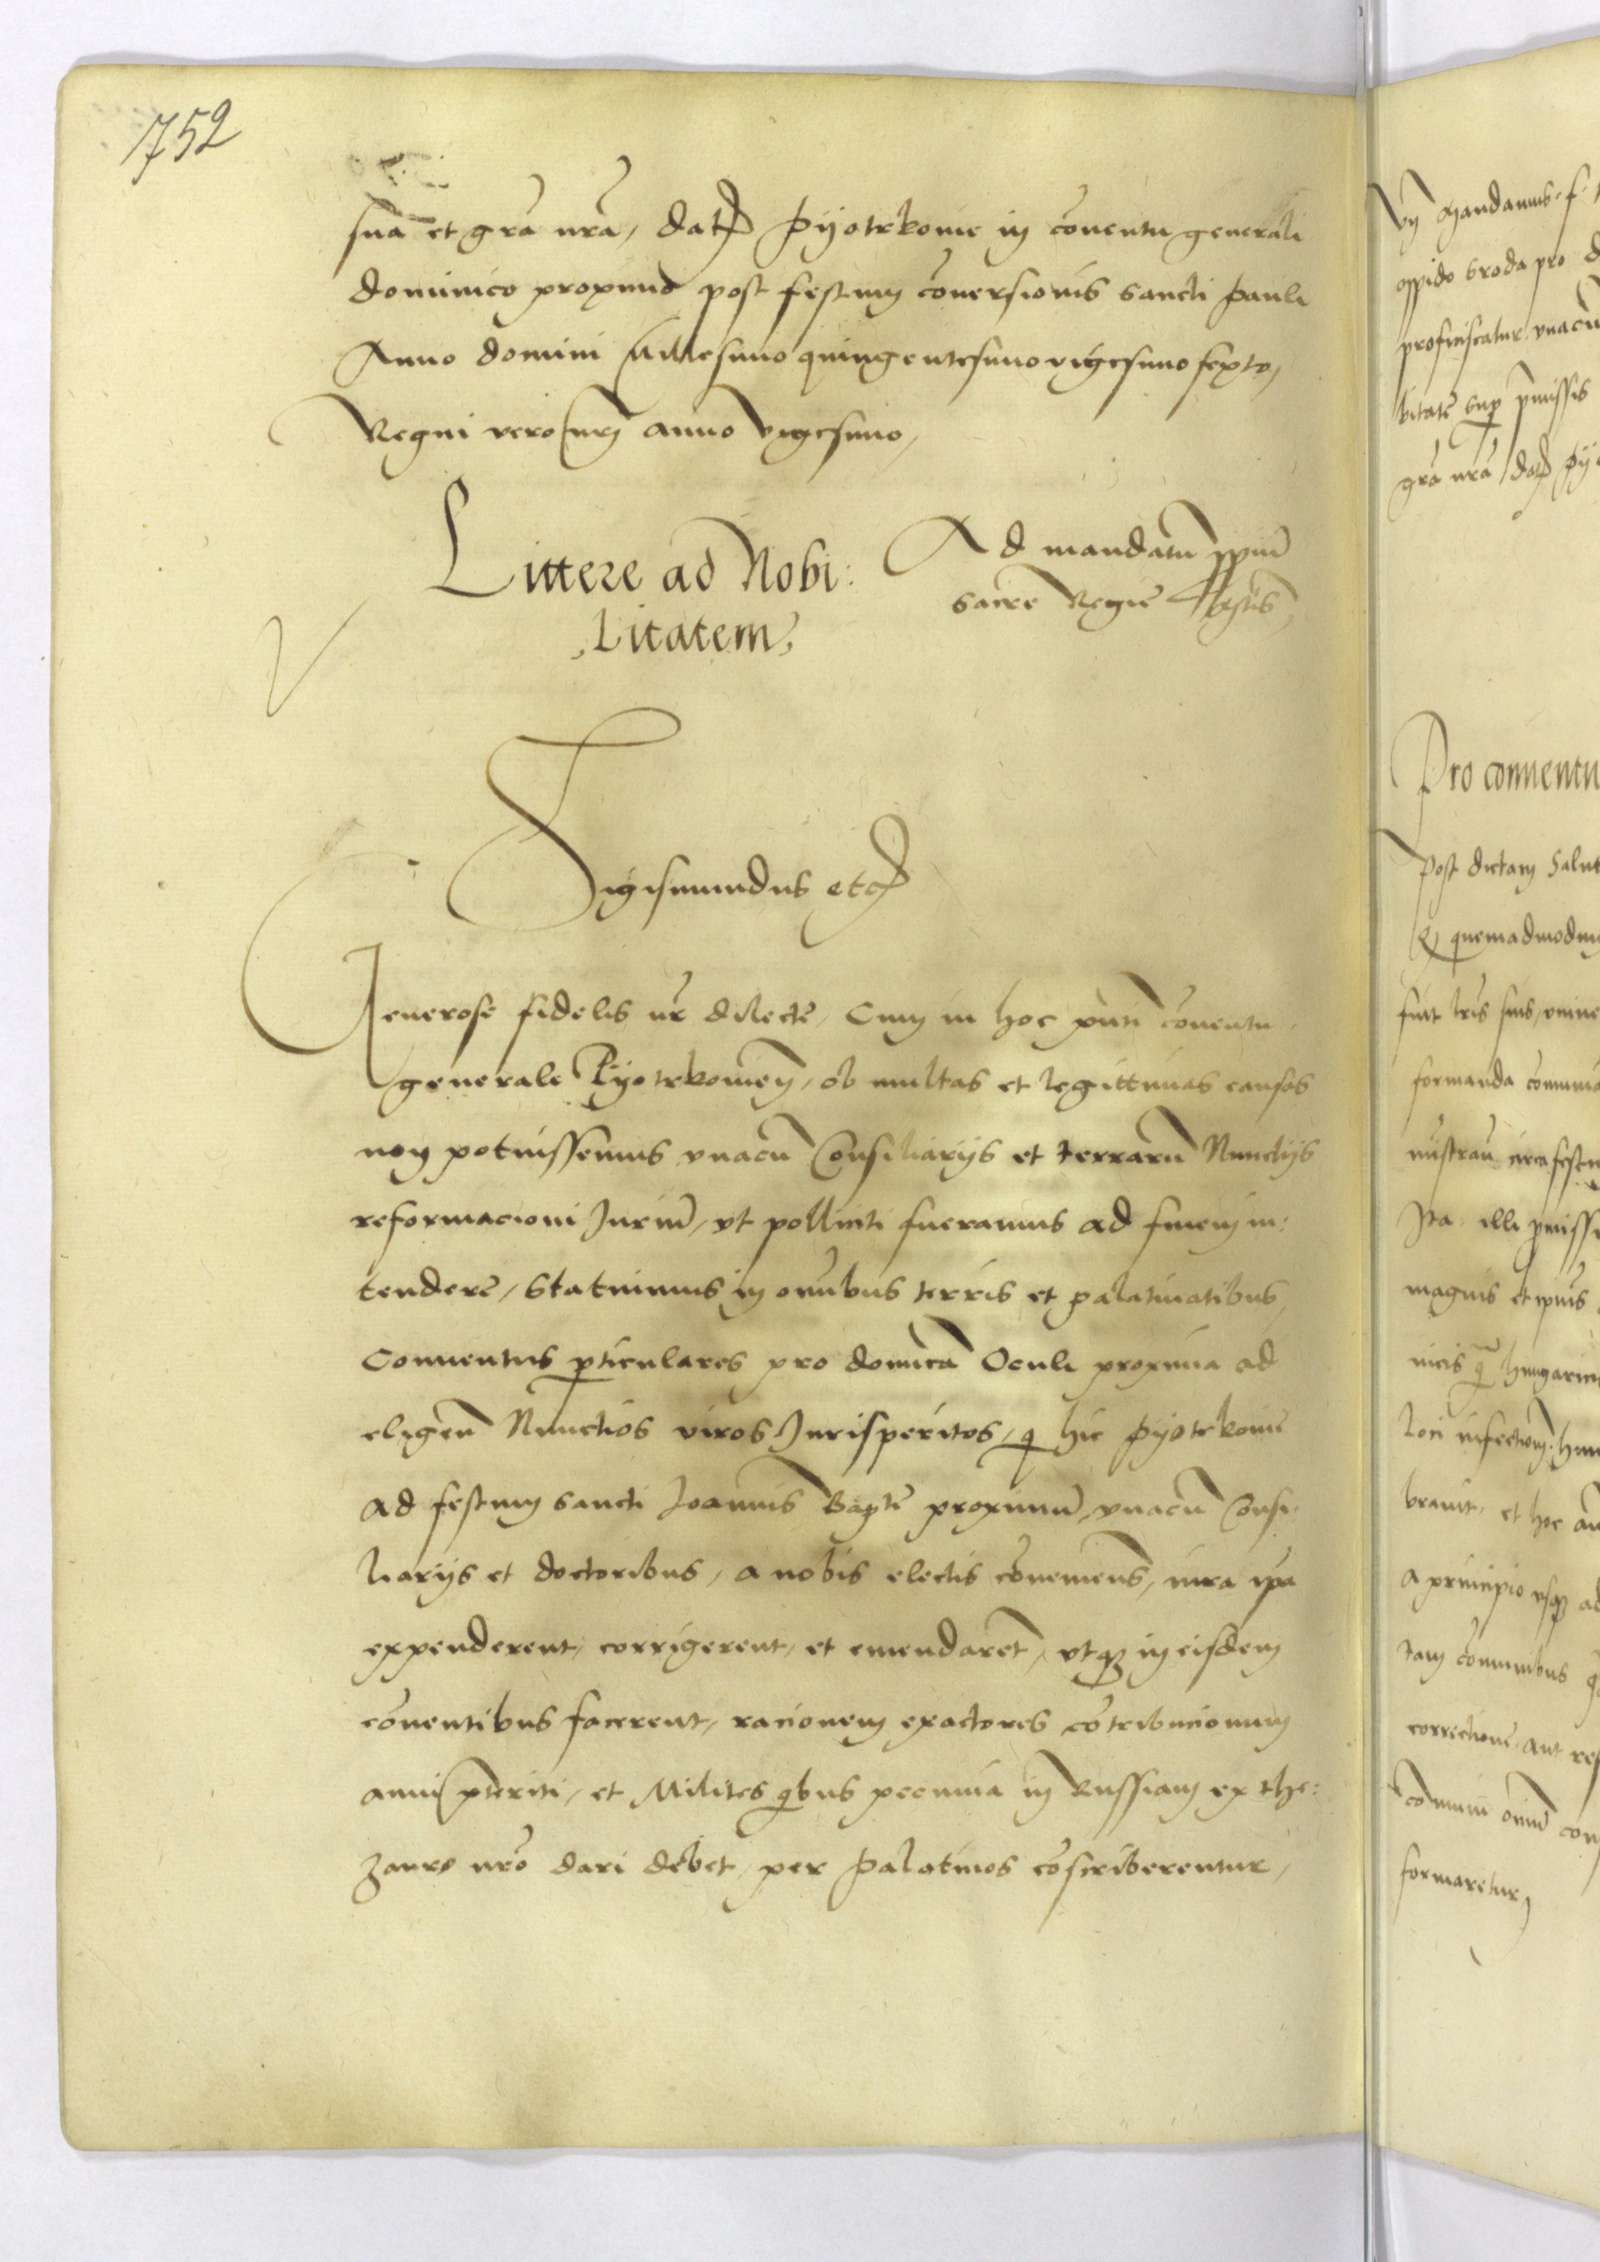 752
suā et grā nrā, dat Pyotrkovie in cōventu generali
dominico proximo post festum cōversionis sancti Pauli
Anno domini Millesimo quingentesimo vigesimo sexto,
Regni vero nri anno vigesimo,
Littere ad Nobi:
litatem,
Ad mandatū ppriū
sacre Regie Mtis
Sigismundus etc
Generose fidelis nr dilecte, Cum in hoc pnti cōventu
generale Pyotrkovien, ob multas et legittimas causas
non potuissemus vnacū Consiliarijs et terrarū Nunctijs
reformacioni Juriū, vt polliciti fueramus ad finem in:
tendere, Statuimus in omībus terris et palatinatibus
Conventus pticulares pro domīca Oculi proxima ad
eligen Nunctios viros Jurisperitos, q hic Pyotrkovie
ad festum sancti Joannis Bapte proximū, vnacū Consi
liarijs et doctoribus, a nobis electis cōveniens, iura ipa
expenderent, corrigerent, et emendaret, vtq in eisdem
cōventibus facerent, racionem exactores cōtribucionum
anni preteriti, et Milites qbus pecunia in Russiam ex the:
zauro nro dari debet, per Palatinos cōscriberentur,
Vn mandamus f. t
oppido Sroda pro d
proficiscatur vnacū
litate sup pmissis
grā nrā, dat Pyo
Pro conventu
Post dictam Salut
Q quemadmodum
fuit lris suis, vnive
formanda cōmuni
nistrau circa festu
Ita illi pmiss
magnis et ipius
nicis q hungarici
loci infectiom, hu
bravit, et hoc an
a principio vsq ad
tam cōmunibus q
correctione aut ref
cōmuni omniū con
formaretur